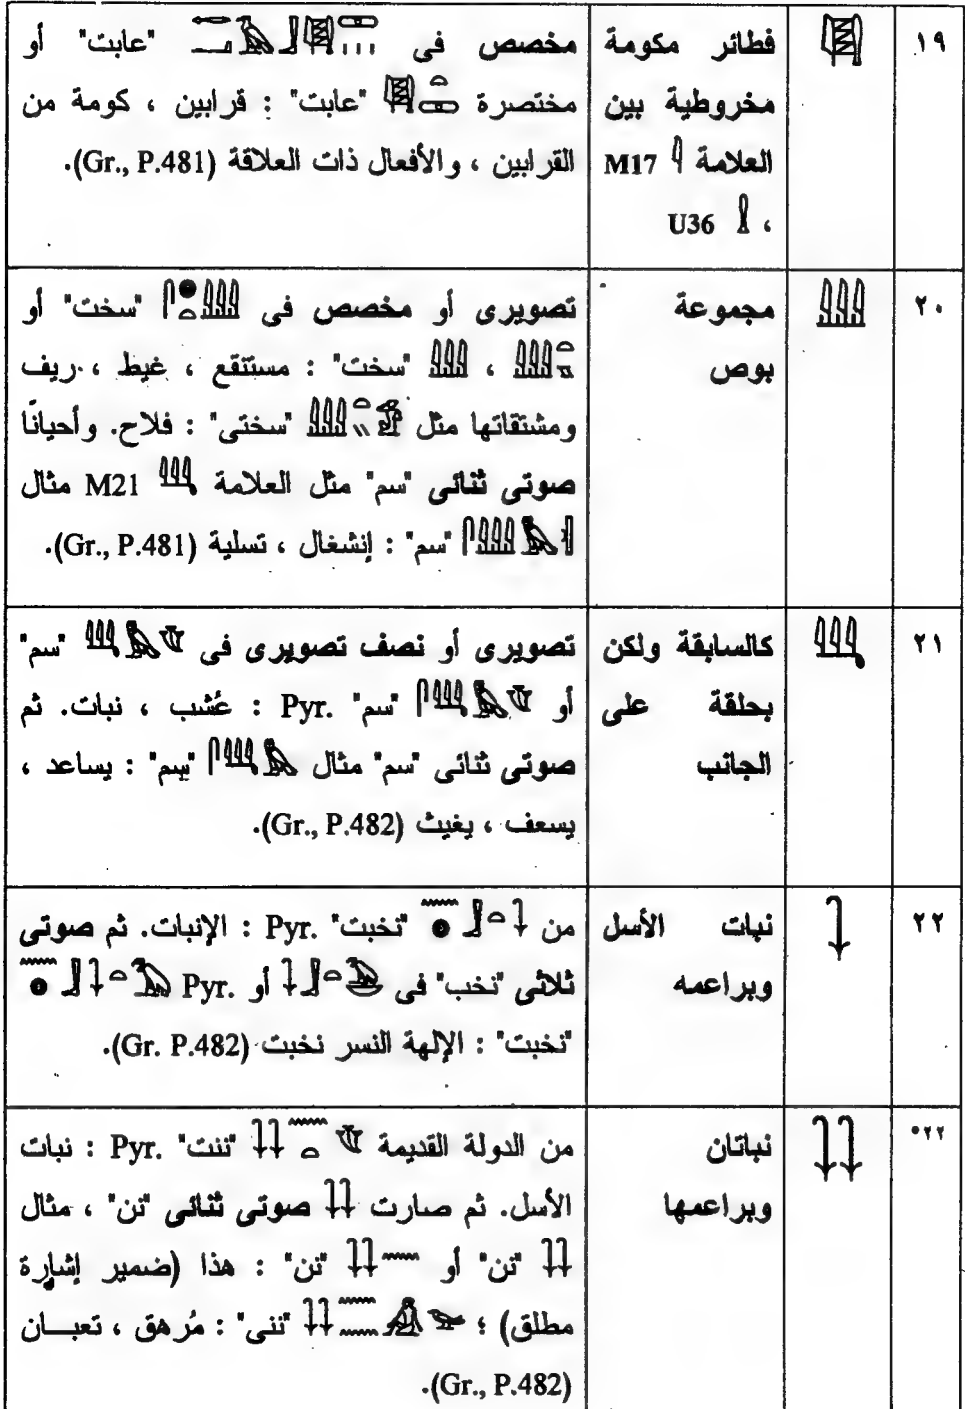 ١٩
فطائر مكومة
مخروطية بين
العلامة M17
، U36
مخصص فى "عابت" أو
مختصرة "عابت" : قرابين ، كومة من
القرابين ، والأفعال ذات العلاقة (Gr., P.481).
٢٠
مجموعة
بوص
تصويرى أو مخصص فى "سخت" أو
، "سخت" : مستنقع ، غيط ، ريف
ومشتقاتها مثل "سختى" : فلاح. وأحيانًا
صوتى ثنائى "سم" مثل العلامة M21 مثال
"سم" : إنشغال ، تسلية (Gr., P.481).
٢١
كالسابقة ولكن
بحلقة على
الجانب
تصويرى أو نصف تصويرى فى "سم"
أو "سم" Pyr. : عُشب ، نبات. ثم
صوتى ثنائى "سم" مثال "سم" : يساعد ،
يسعف ، يغيث (Gr., P.482).
٢٢
نبات الأسل
وبراعمه
من "نخبت" Pyr. : الإنبات. ثم صوتى
ثلاثى "نخب" فى أو Pyr.
"نخبت" : الإلهة النسر نخبت (Gr. P.482).
٢٢°
نباتان
وبراعمها
من الدولة القديمة "ننت" Pyr. : نبات
الأسل. ثم صارت صوتى ثنائى "نن" ، مثال
"نن" أو "نن" : هذا (ضمير إشارة
مطلق) ؛ "ننى" : مُرهق ، تعبــان
(Gr., P.482).